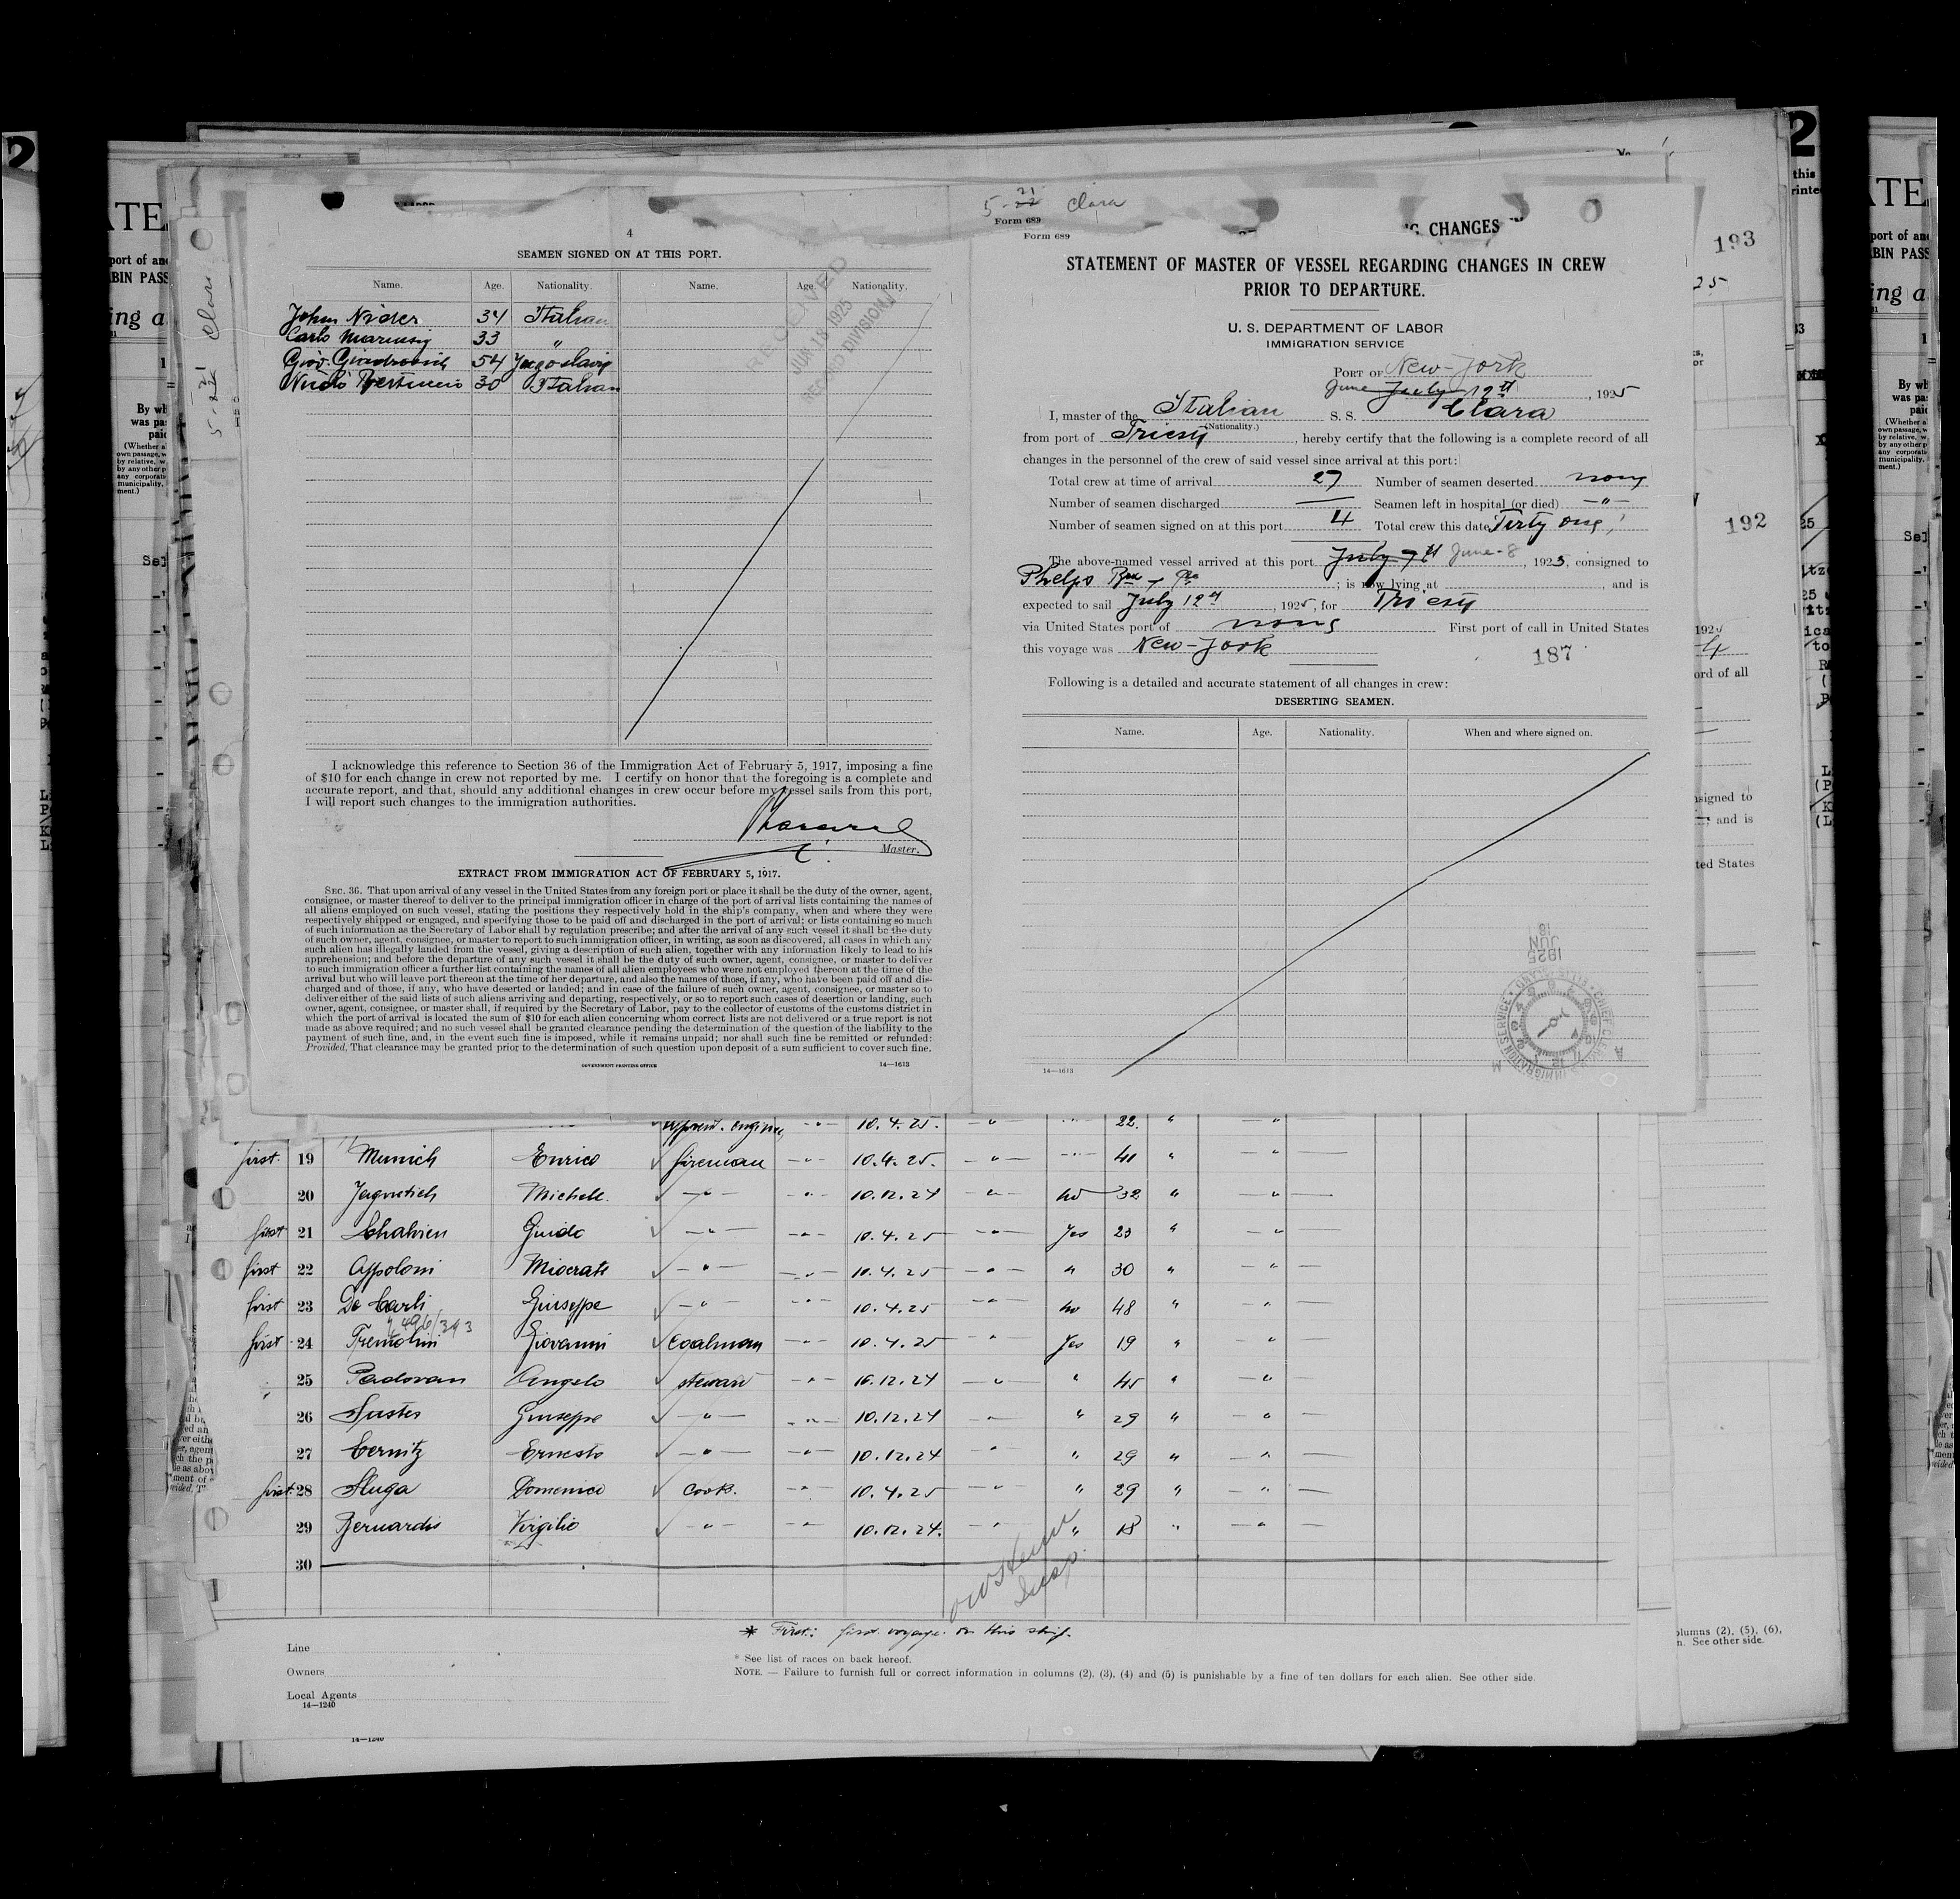 5-21 Clara
Form 689
Form 689
4
SEAMEN SIGNED ON AT THIS PORT.
Name. Age. Nationality. Name. Age. Nationality.
John Nider 34 Italian
Carlo 33 "
Giov. 54 Jugoslavia
30 Italian
RECEIVED
JUN 18 1925
RECORD DIVISION
I acknowledge this reference to Section 36 of the Immigration Act of February 5, 1917, imposing a fine
of $10 for each change in crew not reported by me. I certify on honor that the foregoing is a complete and
accurate report, and that, should any additional changes in crew occur before my vessel sails from this port,
I will report such changes to the immigration authorities.
Master.
EXTRACT FROM IMMIGRATION ACT OF FEBRUARY 5, 1917.
SEC. 36. That upon arrival of any vessel in the United States from any foreign port or place it shall be the duty of the owner, agent,
consignee, or master thereof to deliver to the principal immigration officer in charge of the port of arrival lists containing the names of
all aliens employed on such vessel, stating the positions they respectively hold in the ship's company, when and where they were
respectively shipped or engaged, and specifying those to be paid off and discharged in the port of arrival; or lists containing so much
of such information as the Secretary of Labor shall by regulation prescribe; and after the arrival of any such vessel it shall be the duty
of such owner, agent, consignee, or master to report to such immigration officer, in writing, as soon as discovered, all cases in which any
such alien has illegally landed from the vessel, giving a description of such alien, together with any information likely to lead to his
apprehension; and before the departure of any such vessel it shall be the duty of such owner, agent, consignee, or master to deliver
to such immigration officer a further list containing the names of all alien employees who were not employed thereon at the time of the
arrival but who will leave port thereon at the time of her departure, and also the names of those, if any, who have been paid off and dis-
charged and of those, if any, who have deserted or landed; and in case of the failure of such owner, agent, consignee, or master so to
deliver either of the said lists of such aliens arriving and departing, respectively, or so to report such cases of desertion or landing, such
owner, agent, consignee, or master shall, if required by the Secretary of Labor, pay to the collector of customs of the customs district in
which the port of arrival is located the sum of $10 for each alien concerning whom correct lists are not delivered or a true report is not
made as above required; and no such vessel shall be granted clearance pending the determination of the question of the liability to the
payment of such fine, and, in the event such fine is imposed, while it remains unpaid; nor shall such fine be remitted or refunded:
Provided, That clearance may be granted prior to the determination of such question upon deposit of a sum sufficient to cover such fine.
GOVERNMENT PRINTING OFFICE 14—1613
CHANGES
STATEMENT OF MASTER OF VESSEL REGARDING CHANGES IN CREW
PRIOR TO DEPARTURE.
U. S. DEPARTMENT OF LABOR
IMMIGRATION SERVICE
PORT OF New-York
June July 12th, 1925
I, master of the Italian S. S. Clara
(Nationality.)
from port of Triest, hereby certify that the following is a complete record of all
changes in the personnel of the crew of said vessel since arrival at this port:
Total crew at time of arrival 27 Number of seamen deserted none
Number of seamen discharged — Seamen left in hospital (or died) —"—
Number of seamen signed on at this port 4 Total crew this date Tirty one,
The above-named vessel arrived at this port July 7th June-8, 1925, consigned to
Phelps Bros; is now lying at , and is
expected to sail July 12th, 1925, for Triest
via United States port of none First port of call in United States
this voyage was New-York
187
Following is a detailed and accurate statement of all changes in crew:
DESERTING SEAMEN.
Name. Age. Nationality. When and where signed on.
1925
JUN
18
14—1613
193
192
10.4.25. —"— 22. " —"—
first 19 Munich Enrico fireman —"— 10.4.25. —"— 41 " —"—
20 Michele. —"— —"— 10.12.24 —"— no 32 " —"—
first 21 Guido —"— —"— 10.4.25 —"— Yes 23 " —"—
first 22 Appoloni —"— —"— 10.4.25 —"— " 30 " —"—
first 23 De Carli Giuseppe —"— —"— 10.4.25 —"— no 48 " —"—
first 24 Tremolini Giovanni Coalman —"— 10.4.25 " Yes 19 " "
25 Padovan Angelo steward —"— 10.12.24 —"— " 45 " "
26 Suster Giuseppe —"— —"— 10.12.24 —"— " 29 " —"—
27 Cernitz Ernesto —"— —"— 10.12.24 " " 29 " —"—
first 28 Sluga Domenico Cook. —"— 10.4.25 —"— " 29 " —"—
29 Bernardis Virgilio —"— —"— 10.12.24. —"— " 18 " —"—
30
* First: first voyage on this ship.
Line
Owners
Local Agents
14—1240
* See list of races on back hereof.
NOTE. — Failure to furnish full or correct information in columns (2), (3), (4) and (5) is punishable by a fine of ten dollars for each alien. See other side.
14—1240